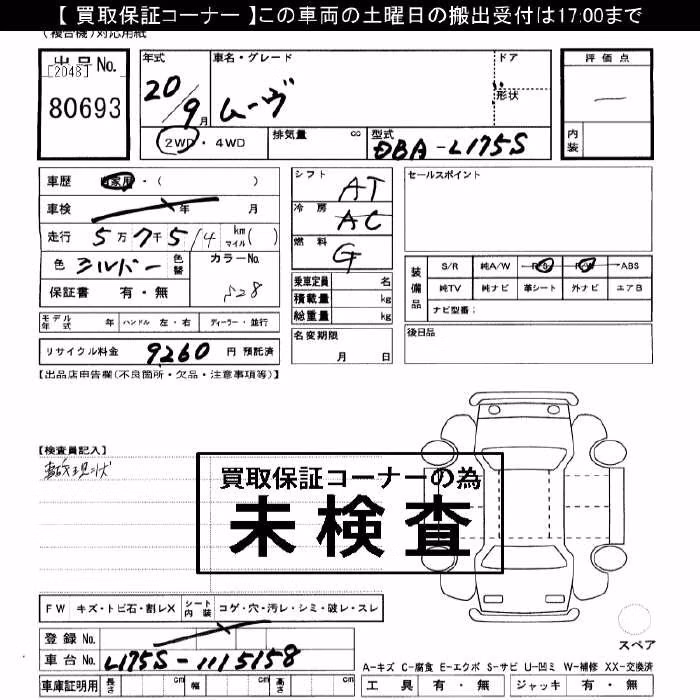 【 買取保証コーナー 】この車両の土曜日の搬出受付は17:00まで
(複合機)対応用紙
出品No.
[2048]
80693
年式 車名・グレード ドア
20/9月 ムーヴ 形状
2WD・4WD 排気量 cc 型式 DBA-L175S
評価点
内装
車歴 自家用・( )
車検 年 月
走行 5万7千514 km マイル( )
色 シルバー 色替 カラーNo.
保証書 有・無 S28
モデル年式 年 ハンドル 左・右 ディーラー・並行
リサイクル料金 9260 円 預託済
シフト AT
冷房 AC
燃料 G
乗車定員 名
積載量 kg
総重量 kg
名変期限
月 日
セールスポイント
装備品 S/R 純A/W P/S P/W ABS
純TV 純ナビ 革シート 外ナビ エアB
ナビ型番:
後日品
【出品店申告欄(不良箇所・欠品・注意事項等)】
【検査員記入】
買取保証コーナーの為
未検査
FW キズ・トビ石・割レX シート内装 コゲ・穴・汚レ・シミ・破レ・スレ
登録 No.
車台 No. L175S-1115158
車庫証明用 長さ cm 幅 cm 高さ cm
スペア
A-キズ C-腐食 E-エクボ S-サビ U-凹ミ W-補修 XX-交換済
工具 有・無 ジャッキ 有・無